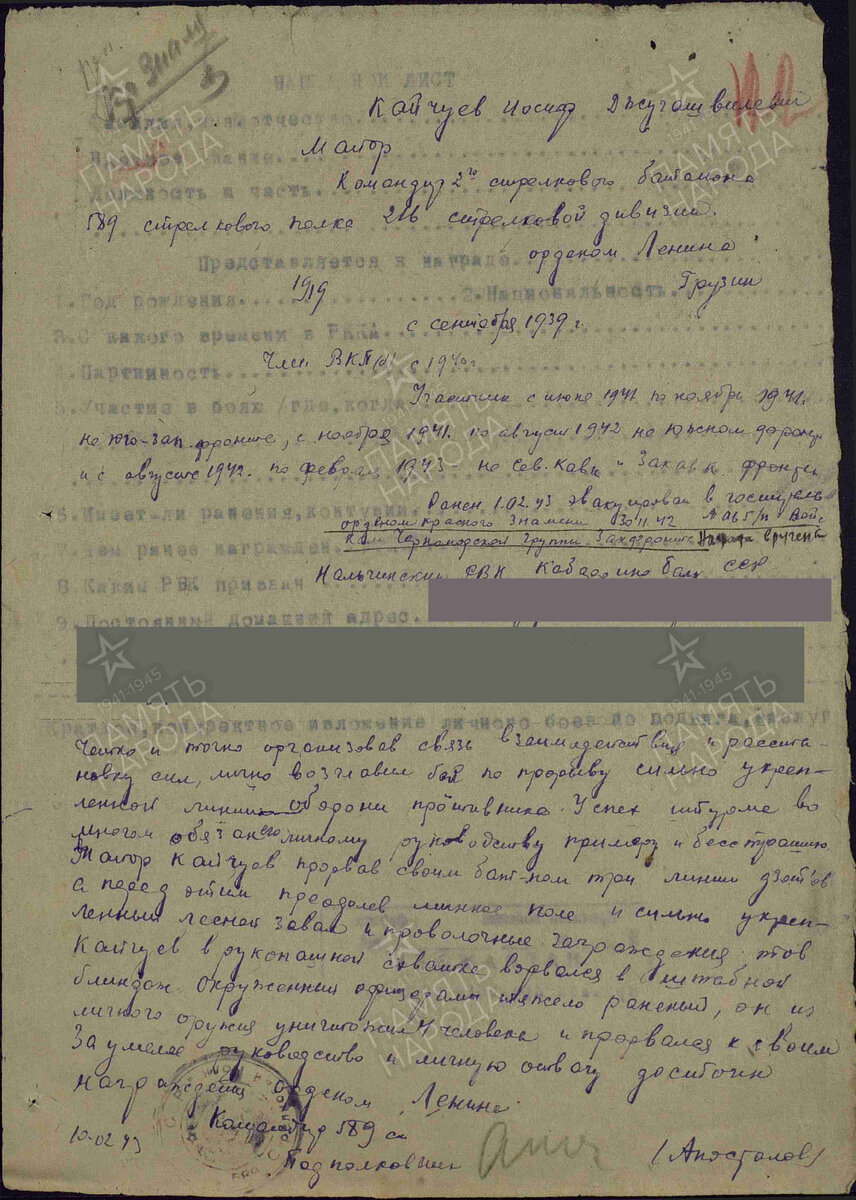 НАГРАДНОЙ ЛИСТ
Кайчуев Иосиф Джугашвилевич
Майор
Должность и часть
Командир 2го стрелкового батальона
589 стрелкового полка 216 стрелковой дивизии.
Представляется к награде
орденом Ленина
1. Год рождения 1919 2. Национальность Грузин
3. С какого времени в РККА с сентября 1939 г
Партийность Член ВКП(б) с 1940 г
5. Участие в боях /где, когда Участник с июня 1941 по ноябрь 1941.
на юго-зап фронте, с ноября 1941. по август 1942 на Южном фронте
и с августа 1942. по февраль 1943 - на Сев. Кавк и Закавк. фронтах
6. Имеет-ли ранения, контузии Ранен 1.02.43 эвакуирован в госпиталь
орденом Красного Знамени 30.11.42
7. Чем ранее награжден Ком Черноморской группы Закфронта
8. Каким РВК призван Нальчинский РВК Кабардино Балк ССР
9. Постоянный домашний адрес.
Краткое, конкретное изложение личного боевого подвига, заслуг
Четко и точно организовав связь взаимодействия и расста-
новку сил, лично возглавил бой по прорыву сильно укреп-
ленной линии обороны противника. Успех штурма во
многом обязан его личному руководству примеру и бесстрашию
Майор Кайчуев прорвав своим бат-ном три линии дзотов
а перед этим преодолев минное поле и сильно укреп-
ленный лесной завал и проволочные заграждения. тов
Кайчуев в рукопашной схватке ворвался в штабной
блиндаж. Окруженный офицерами тяжело раненый, он из
личного оружия уничтожил 4 человека и прорвался к своим
За умелое руководство и личную отвагу достоин
награждения Орденом Ленина
Командир 589 сп
10.02.43 Подполковник (Апостолов)
ПАМЯТЬ НАРОДА
1941-1945